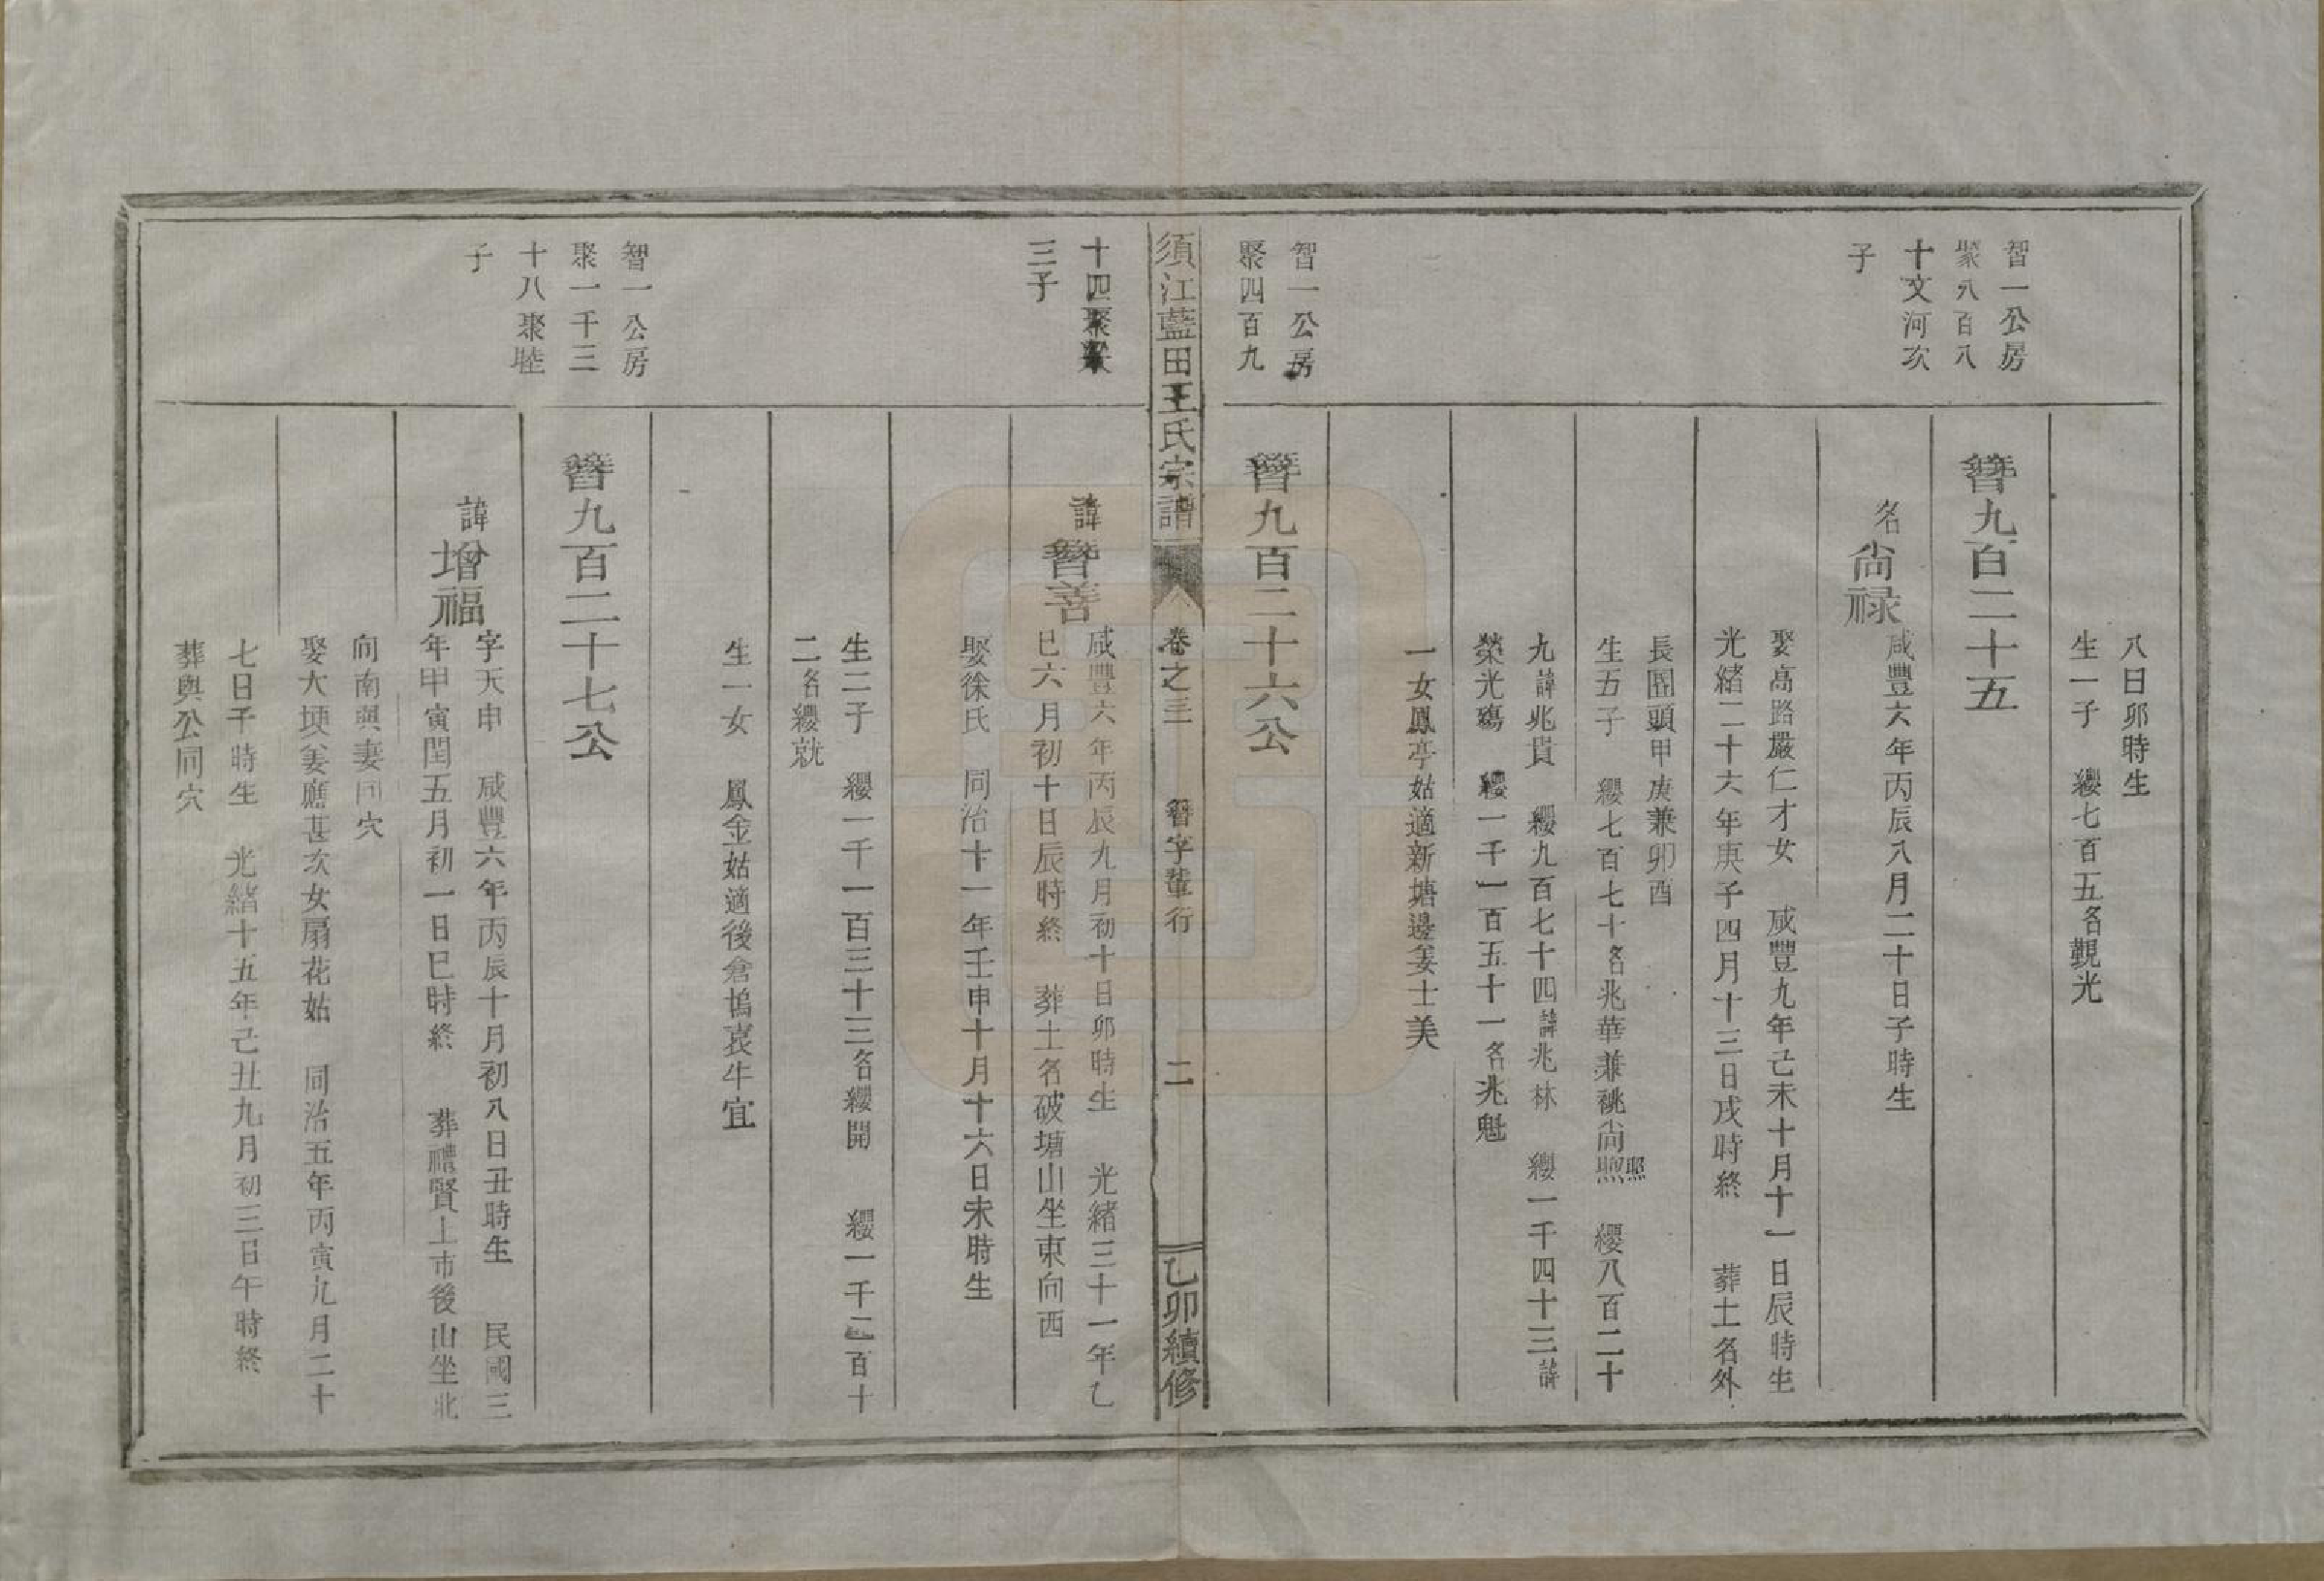 八日卯時生
生一子　纓七百五名觀光
智一公房
聚八百八
十文河次
子
簪九百二十五
名尙祿
咸豐六年丙辰八月二十日子時生
娶高路嚴仁才女　咸豐九年己未十月十一日辰時生
光緒二十六年庚子四月十三日戌時終　葬土名外
長圏頭甲庚兼卯酉
生五子　纓七百七十名兆華兼祧尙煦照　纓八百二十
九諱兆貴　纓九百七十四諱兆林　纓一千四十三諱
榮光殤　纓一千一百五十一名兆魁
一女鳳亭姑適新塘邊姜士美
智一公房
聚四百九
簪九百二十六公
須江藍田王氏宗譜
卷之三
簪字輩行
二
乙卯續修
十四聚
三子
諱簪善
咸豐六年丙辰九月初十日卯時生　光緒三十一年乙
巳六月初十日辰時終　葬土名破塘山坐東向西
娶徐氏　同治十一年壬申十月十六日未時生
生二子　纓一千一百三十三名纓開　纓一千二百十
二名纓就
生一女　鳳金姑適後倉塢裘牛宜
智一公房
聚一千三
十八聚睦
子
簪九百二十七公
諱增福
字天申　咸豐六年丙辰十月初八日丑時生　民國三
年甲寅閏五月初一日巳時終　葬禮賢上市後山坐北
向南與妻同穴
娶大塽姜應甚次女扇花姑　同治五年丙寅九月二十
七日子時生　光緒十五年己丑九月初三日午時終
葬與公同穴